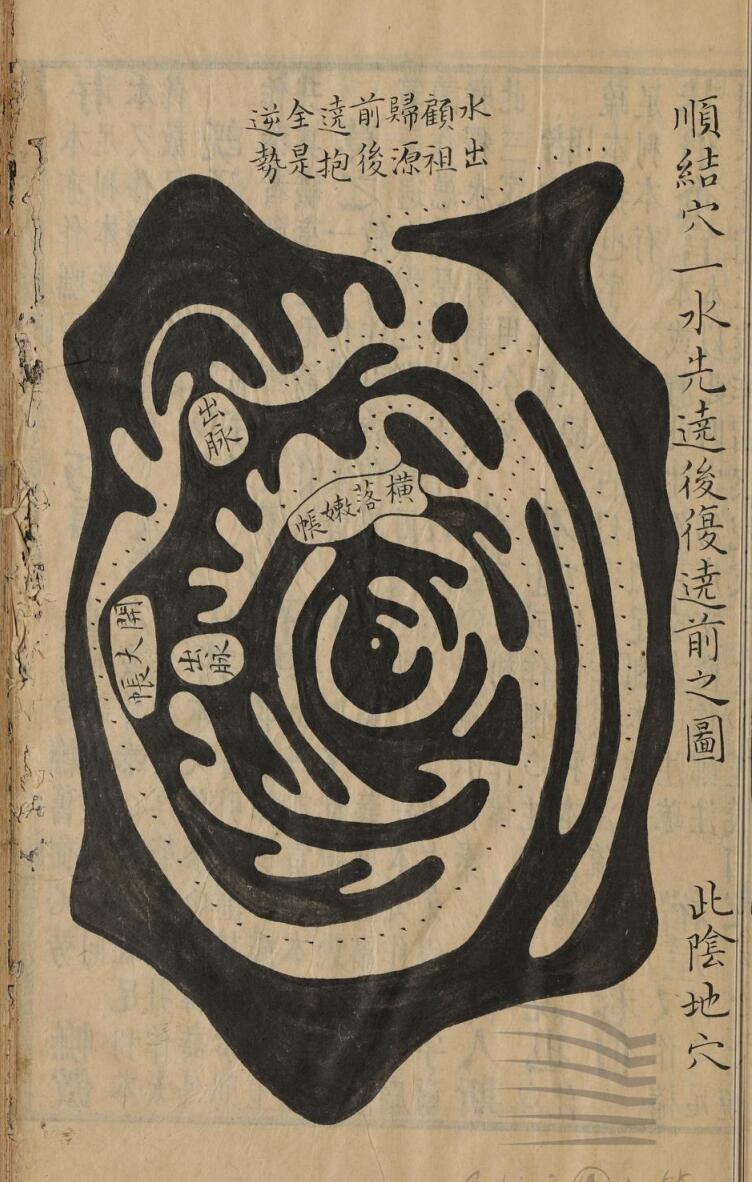 順結穴一水先遶後復遶前之圖
此陰地穴
水出
顧祖
歸源
前後
遶抱
全是
逆勢
出脉
橫落嫩帳
出脉
開大帳